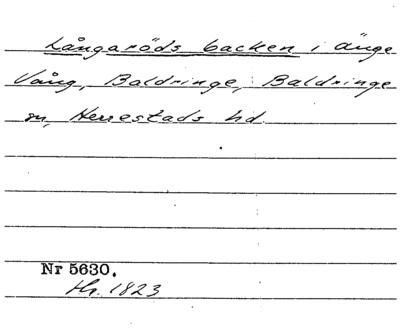 Långaröds backen i änge
Vång, Baldringe, Baldringe
sn, Herrestads hd.
Nr 5630.
Hr. 1823